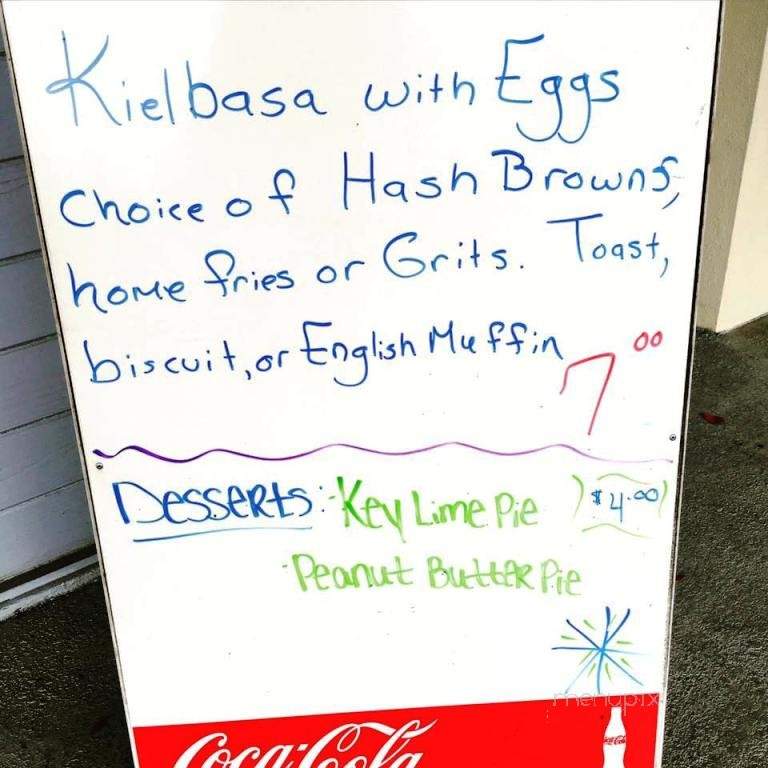 Kielbasa with Eggs
Choice of Hash Browns,
home fries or Grits. Toast,
biscuit, or English Muffin
7.00
Desserts: ·Key Lime Pie $4.00
·Peanut Butter Pie
menupix
Coca-Cola
Coca-Cola